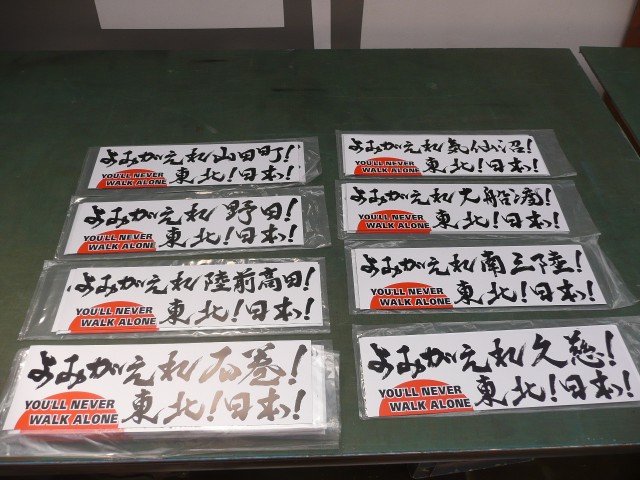 よみがえれ山田町!
YOU'LL NEVER
WALK ALONE
東北!日本!
よみがえれ野田!
YOU'LL NEVER
WALK ALONE
東北!日本!
よみがえれ陸前高田!
YOU'LL NEVER
WALK ALONE
東北!日本!
よみがえれ石巻!
YOU'LL NEVER
WALK ALONE
東北!日本!
よみがえれ気仙沼!
YOU'LL NEVER
WALK ALONE
東北!日本!
よみがえれ大船渡!
YOU'LL NEVER
WALK ALONE
東北!日本!
よみがえれ南三陸!
YOU'LL NEVER
WALK ALONE
東北!日本!
よみがえれ久慈!
YOU'LL NEVER
WALK ALONE
東北!日本!